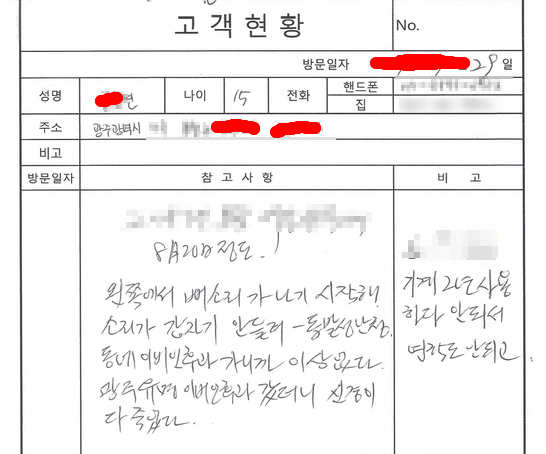 고객현황
No.
방문일자 29일
성명 나이 15 전화 핸드폰
집
주소 광주광역시
비고
방문일자 참고사항 비고
8月20日 정도.
왼쪽에서 삐소리가 나기 시작해
소리가 갑자기 안들려 - 돌발성난청.
동네 이비인후과 가니까 이상없다.
광주유명 이비인후과 갔더니 신경이
다 죽었다.
기계 2년사용
하다 안되서
연락도 안되고